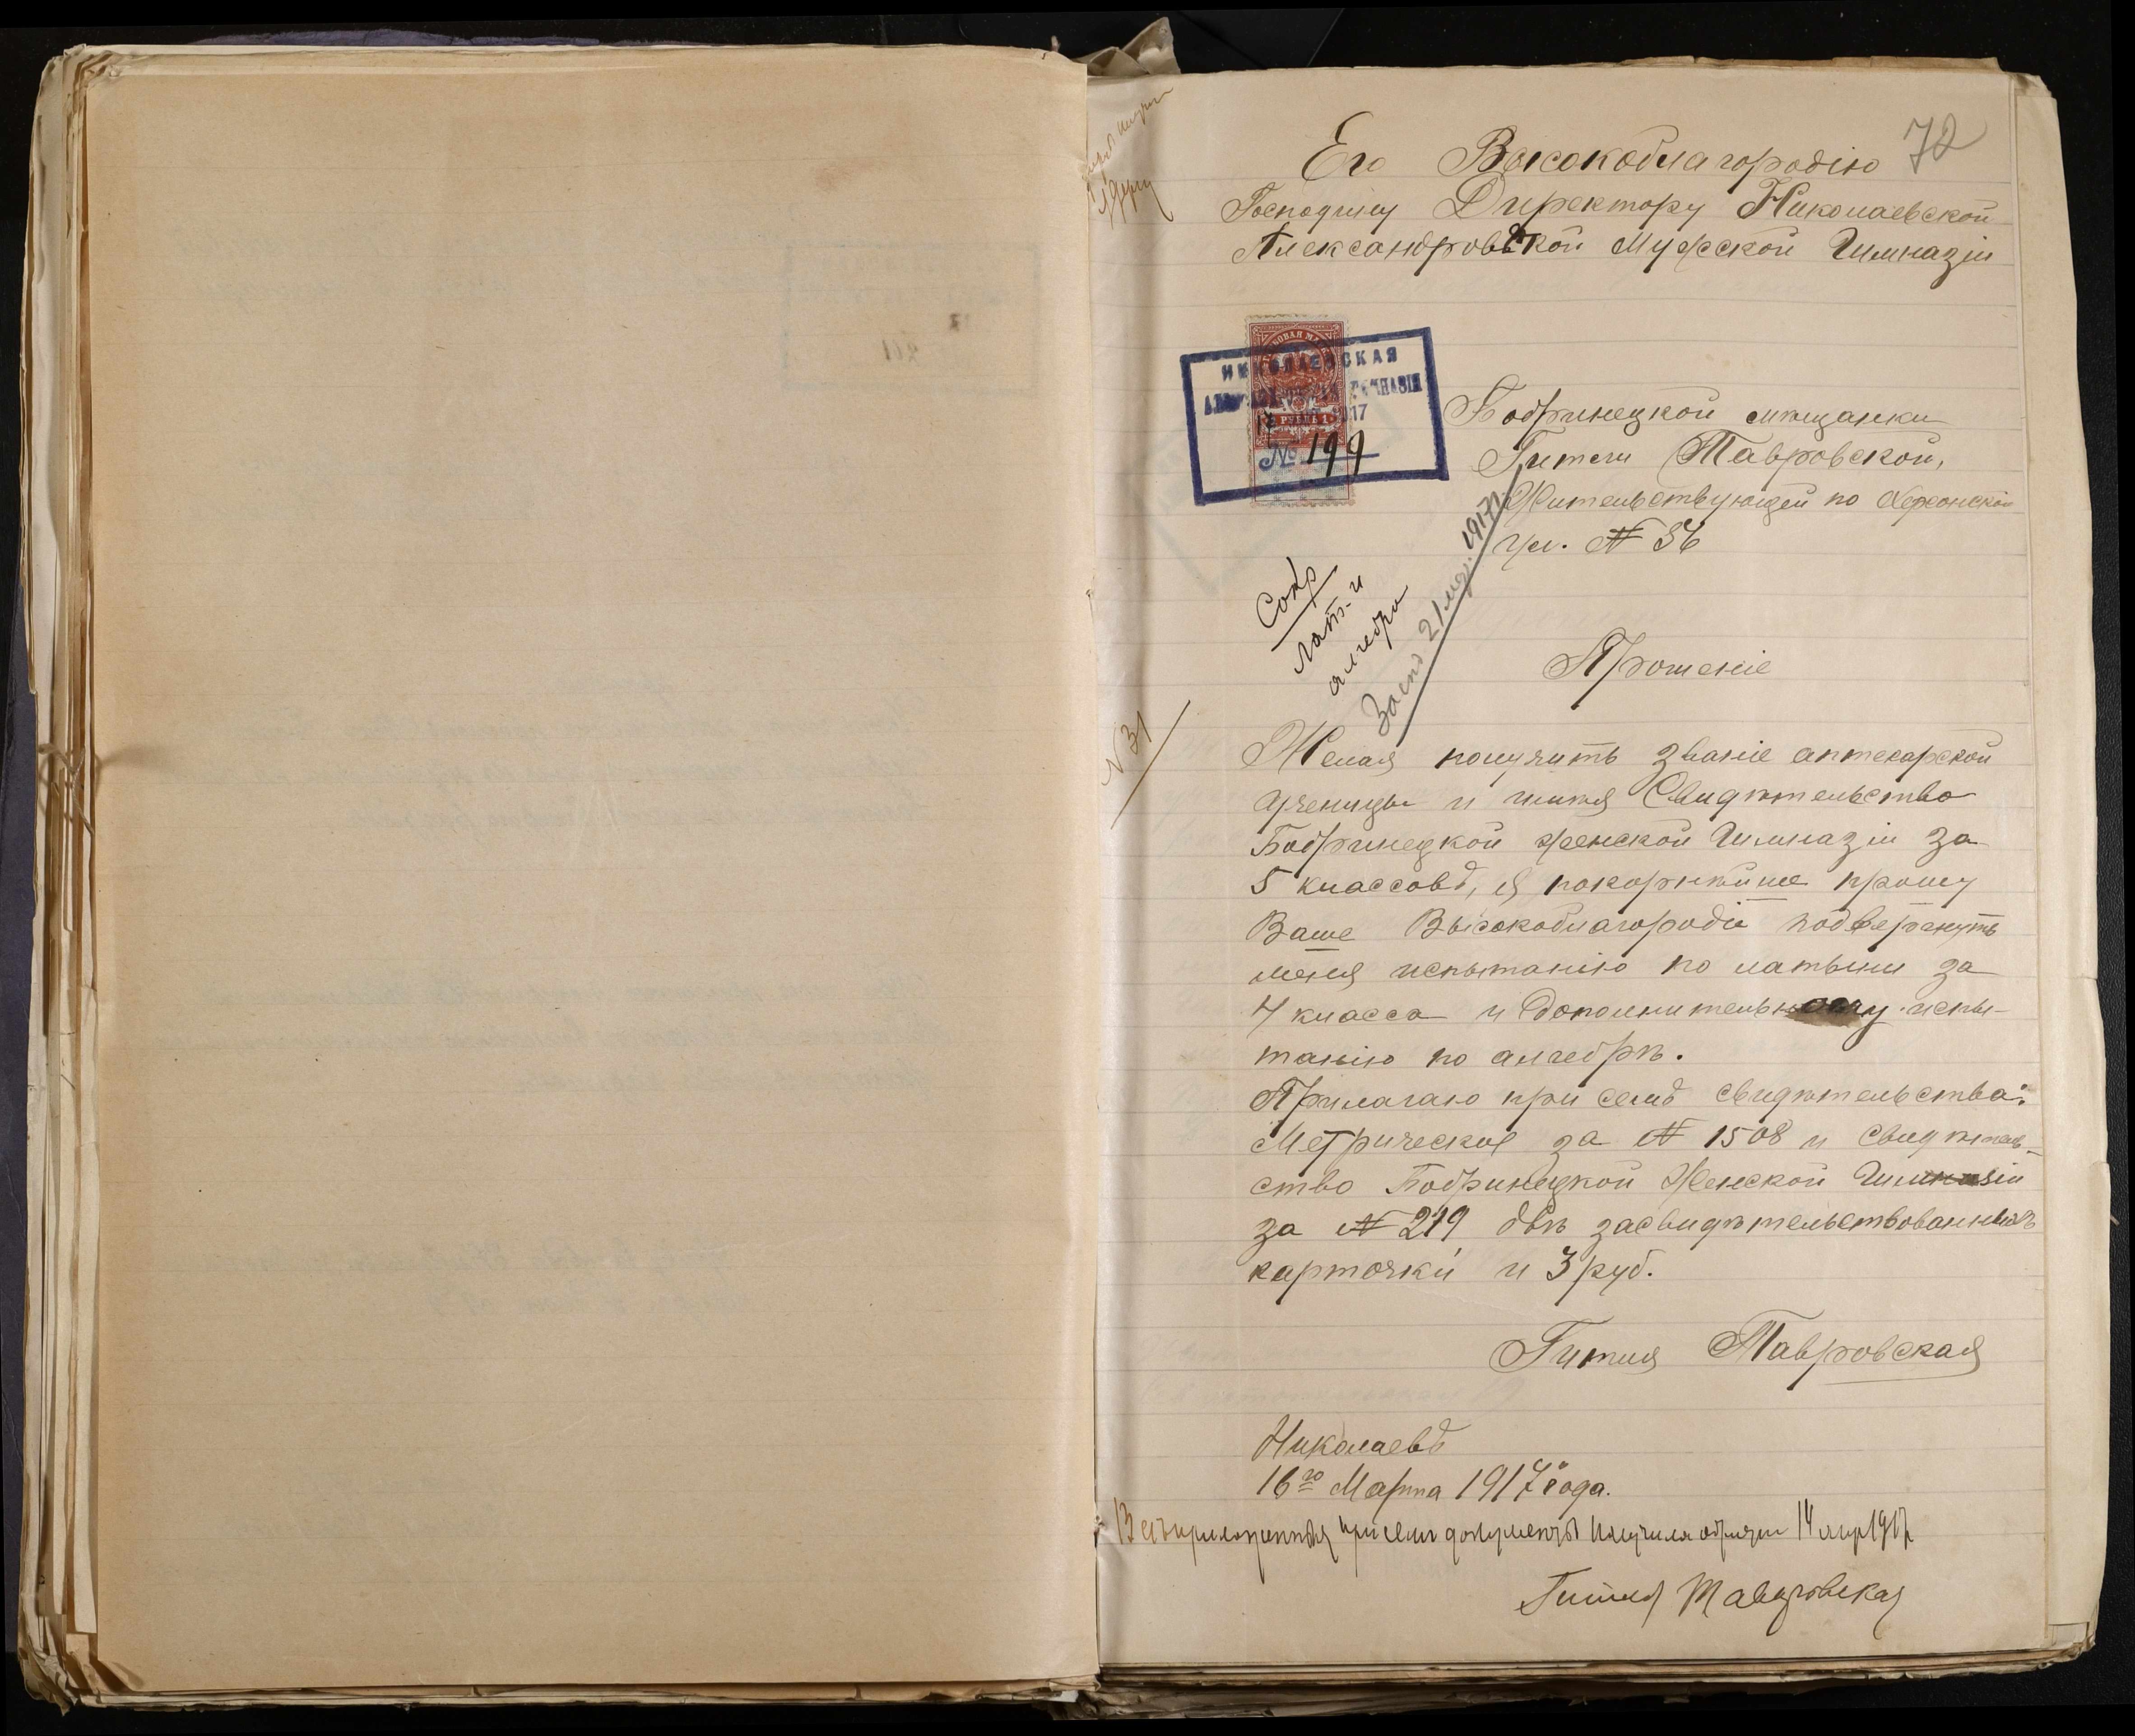 72
Его Высокоблагородію
Господину Директору Николаевской
Александровской Мужской Гимназіи
НИКОЛАЕВСКАЯ
ГИМНАЗІЯ
№ 199
Бобринецкой мѣщанки
Гители Тавровской,
Жительствующей по Херсонской
ул. № 56
Лат. и
алгебра
21 мар. 1917 г.
Прошеніе
№ 31
Желая получить званіе аптекарской
ученицы и имѣя Свидѣтельство
Бобринецкой женской Гимназіи за
5 классовъ, я покорнѣйше прошу
Ваше Высокоблагородіе подвергнуть
меня испытанію по латыни за
4 класса и дополнительному испы-
танію по алгебрѣ.
Прилагаю при семъ свидѣтельства:
Метрическое за № 1508 и свидѣтель-
ство Бобринецкой Женской Гимназіи
за № 219 двѣ засвидѣтельствованныхъ
карточки и 3 руб.
Гителя Тавровская
Николаевъ
16го Марта 1917 года.
Всѣ приложенныя при семъ документы получила обратно 14 1917
Гителя Тавровская